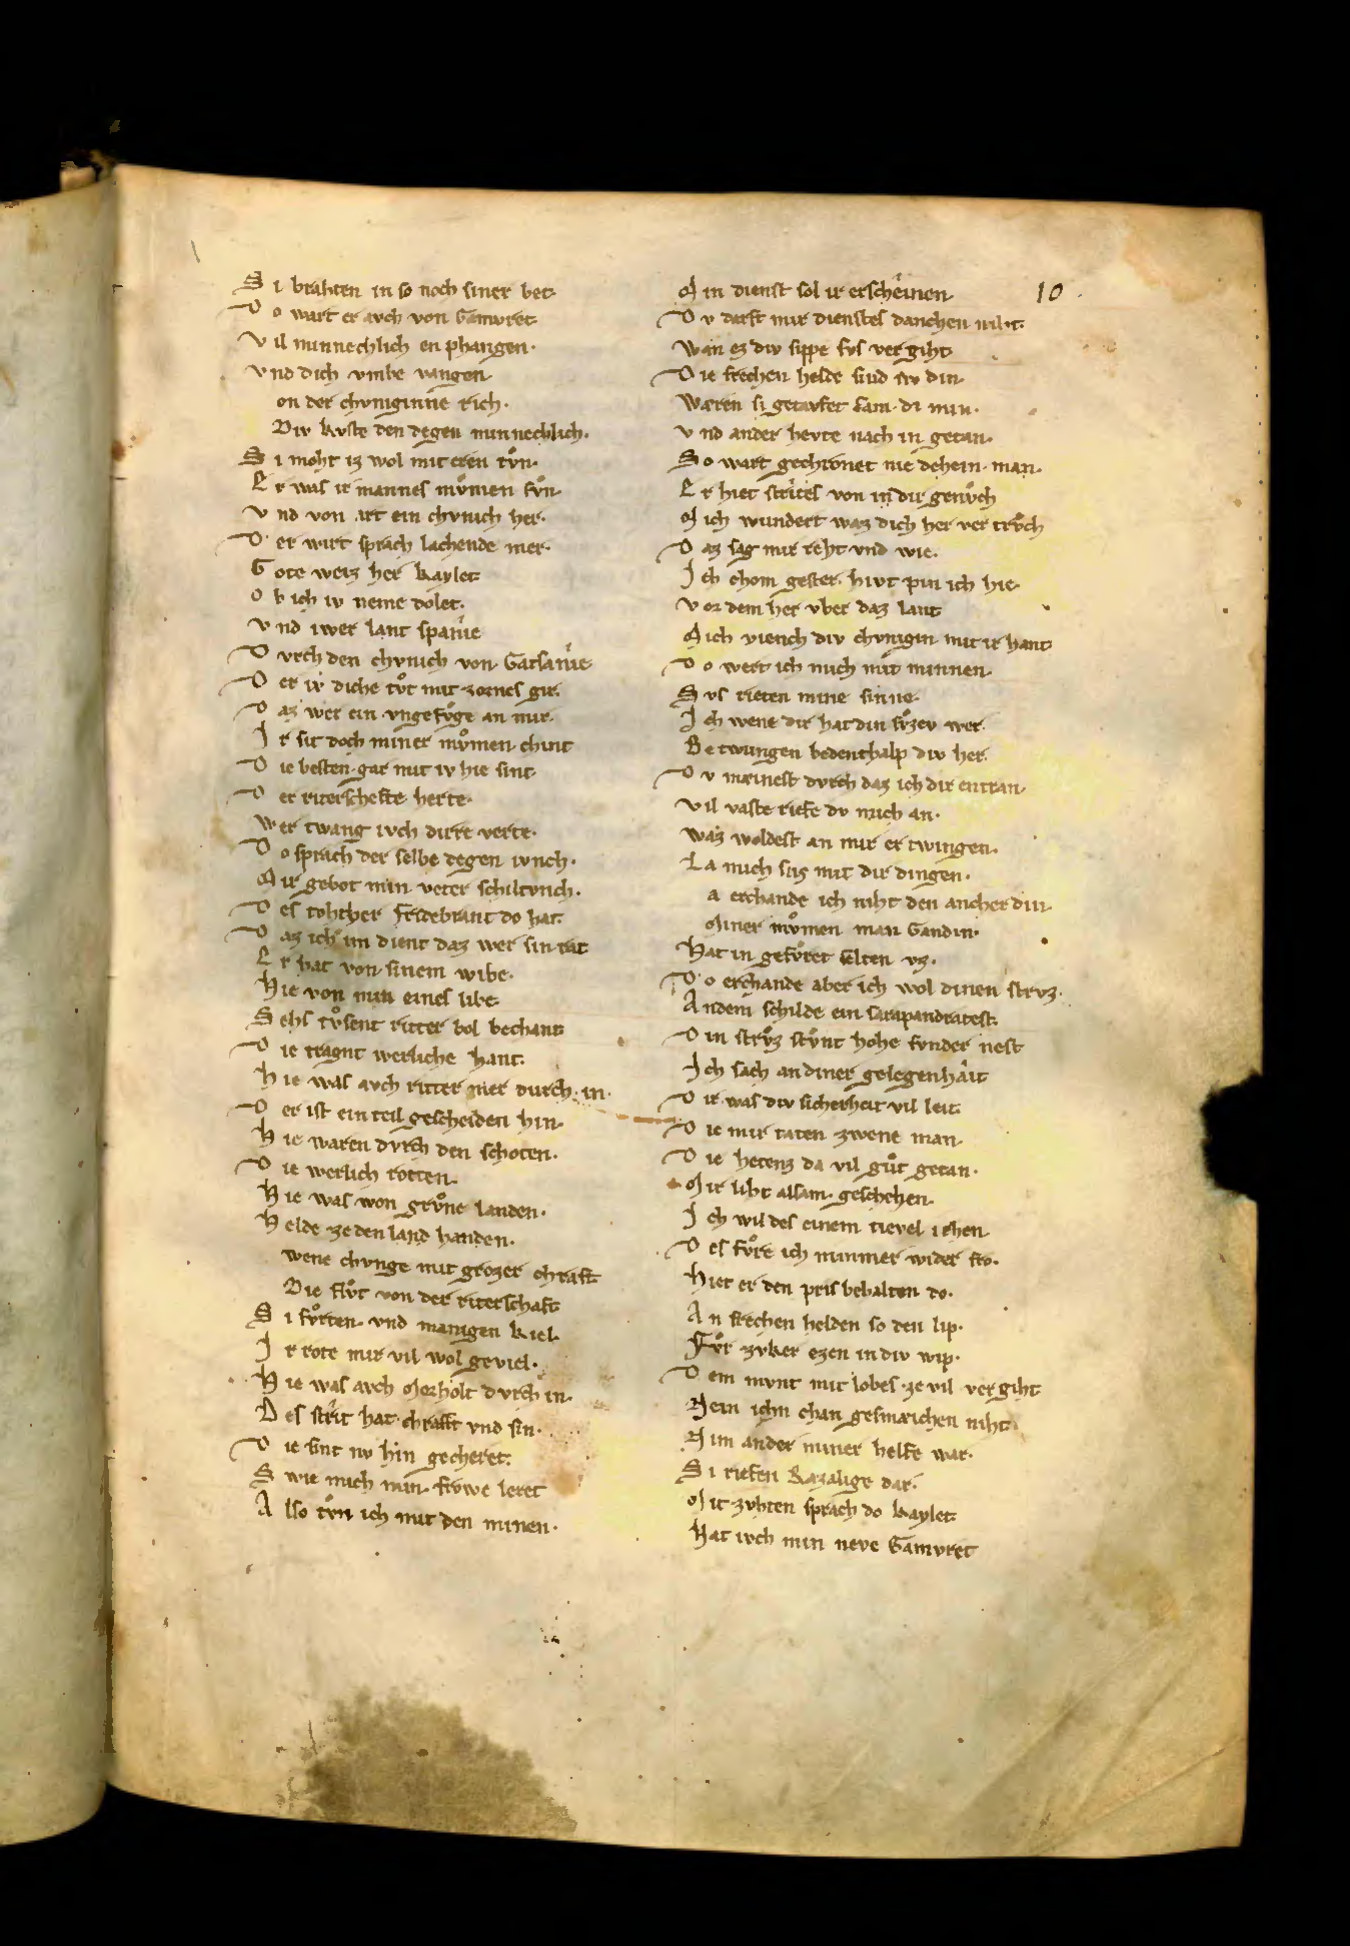 S i brahten in so noch siner bet·
D o wart er avch von Gamvret
V il minnechlich en phangen·
V nd dich vmbe vangen
on der chvniginne rich·
Div kvste den degen minnechlich·
S i moht iz wol mit eren tv̊n·
E r was ir mannes mv̊men sv̊n
V nd von art ein chvnich her·
D er wirt sprach lachende mer·
G ote weiz her kaylet
O b ich iv neme dolet·
V nd iwer lant spanie
D vrch den chvnich von Gatsanie
D er iv diche tv̊t mit zornes gir·
D az wer ein vngefv̊ge an mir·
I r sit doch miner mv̊men chint
D ie besten gar mit iv hie sint·
D er riterschefte herte·
Wer twang ivch dirre verte·
D o sprach der selbe degen ivnch·
M ir gebot min veter schiltvnch·
D es tohther fridebrant do hat·
D az ich im dient daz wer sin rat
E r hat von sinem wibe·
Hie von min eines libe
S ehs tv̊sent ritter vol bechant
D ie tragnt werliche hant·
H ie was avch ritter mer durch in·
D er ist ein teil gescheiden hin·
H ie waren dvrch den schoten·
D ie werlich rotten·
H ie was won grv̊ne landen·
H elde ze den land handen·
wene chvnge mit grozer chraft
Die flv̊t von der riterschaft
S i fv̊rten vnd manigen kiel
I r rote mir vil wol geviel·
H ie was avch Morholt dvrch in·
D es strit hat chrafft vnd sin·
D ie sint nv hin gecheret·
S wie mich min frowe leret
A lso tv̊n ich mit den minen·
M in dienst sol ir erscheinen
D v darft mir dienstes danchen niht·
Wan ez div sippe svs vergiht
D ie frechen helde sind fro din
Wæren si getavfet sam di min·
V nd ander hevte nach in getan·
S o wart gechronet nie dehein man·
E r hiet strites von in dir genv̊ch
M ich wundert waz dich her vertrv̊ch
D az sag mir reht vnd wie·
I ch chom gester hivt pin ich hie·
V or dem her vber daz lant
Mich viench div chvnigin mit ir hant
D o wert ich mich mit minnen·
S vs rieten mine sinne·
I ch wene dir hat din sv̊zev wer·
Betwungen bedenthalp div her·
D v mæinest dvrch daz ich dir entran·
Vil vaste riefe dv mich an·
Waz woldest an mir ertwingen·
L a mich sus mit dir dingen·
a erchande ich niht den ancher din
Miner mv̊men man Gandin·
Hat in gefv̊ret selten vz·
D o erchande aber ich wol dinen strvz·
Andem schilde ein sarapandratest
D in strv̊z stv̊nt hohe svnder nest
I ch sach an diner gelegenhait
D ir was div sicherheit vil leit
D ie mir taten zwene man·
D ie hetenz da vil gv̊t getan·
Mir liht allam geschehen·
I ch wil des einem tievel iehen
D es fv̊re ich nimmer wider fro·
Hiet er den pris behalten do·
A n frechen helden so den lip·
Fv̊r zvker ezen in div wip·
D em mvnt mit lobes ze vil vergiht
Nein ichn chan gesmæichen niht
Nim ander miner helfe war·
S i riefen Razalige dar·
Mit zvhten sprach do kaylet
Hat ivch min neve Gamvret
10